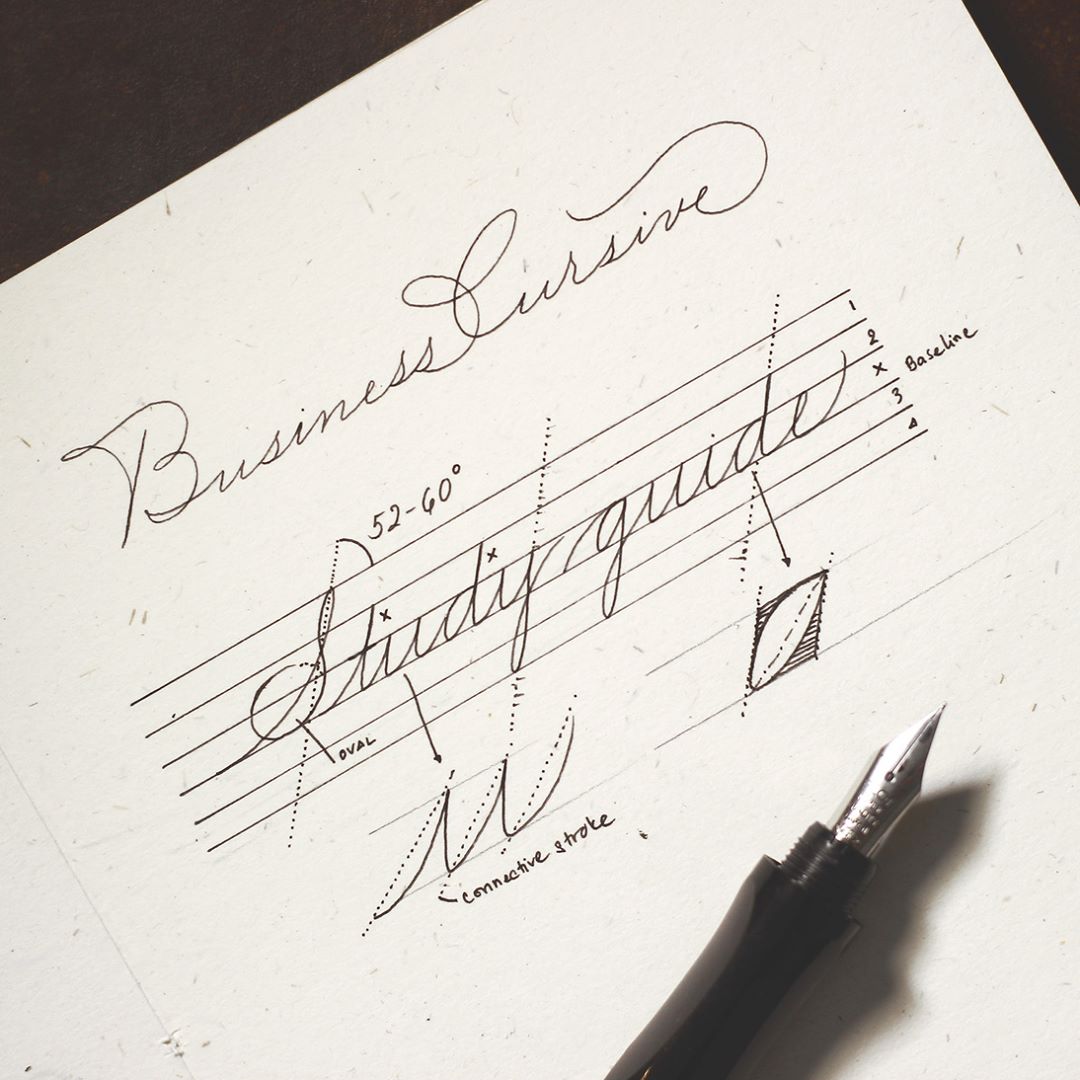 Business Cursive
52-60°
1
2
x
Baseline
3
4
x
x
Study guide
OVAL
Connective stroke